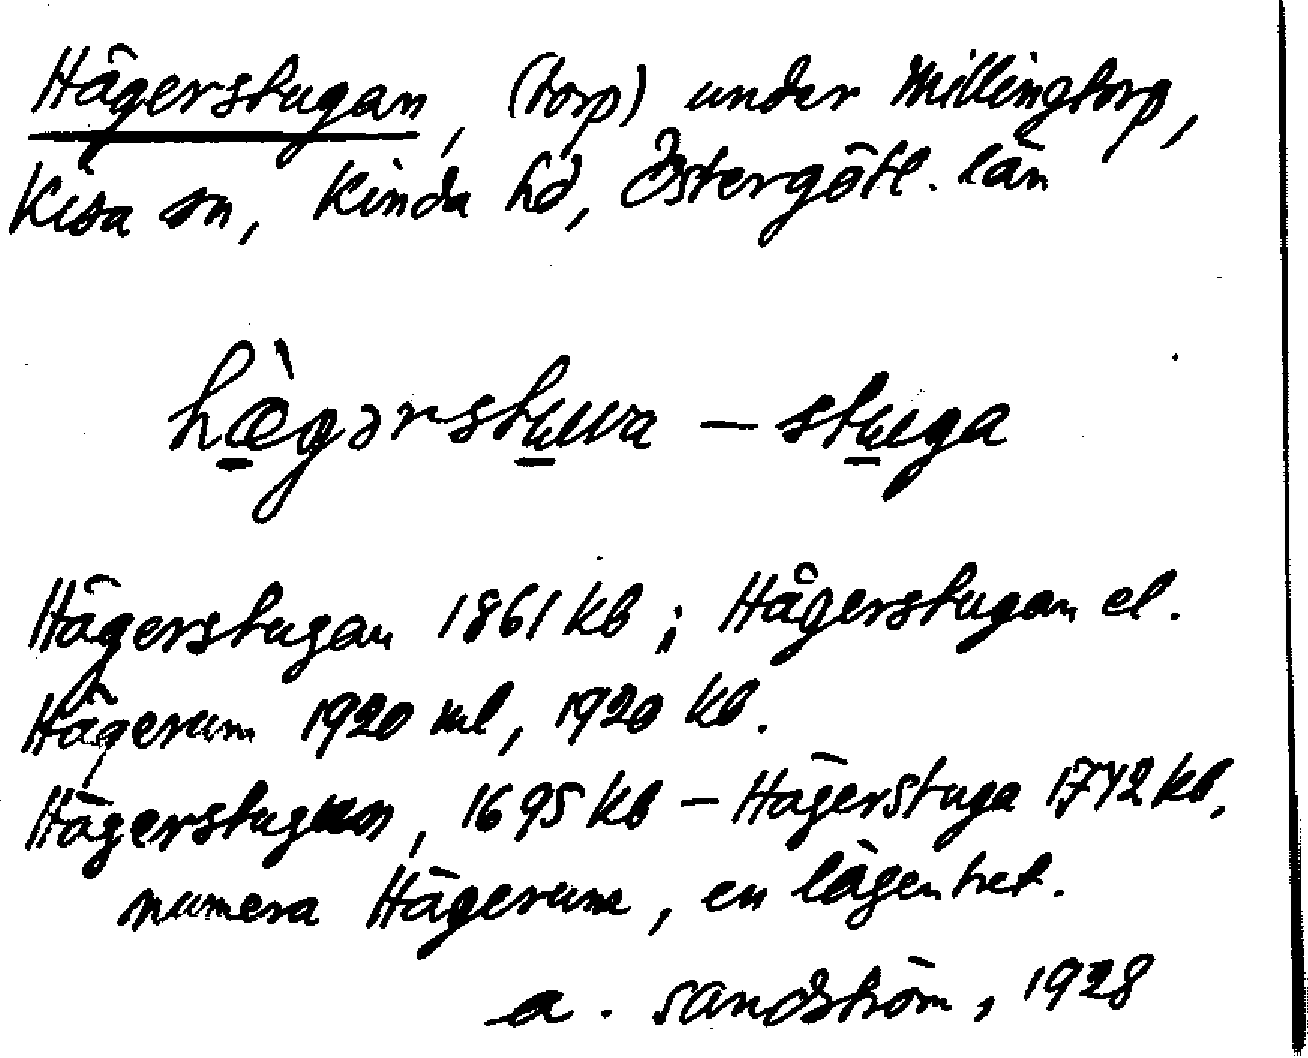 Hägerstugan, (torp) under Millingtorp,
Kisa sn, Kinda hd, Östergötl. län
hæ̀gərstuwa – stuga
Hägerstugan 1861 kb; Hågerstugan el.
Hägerum 1920 ml, 1920 kb.
Hägerstugan, 1695 kb – Hägerstuga 1742 kb,
numera Hägerum, en lägenhet.
A. Sandström, 1928